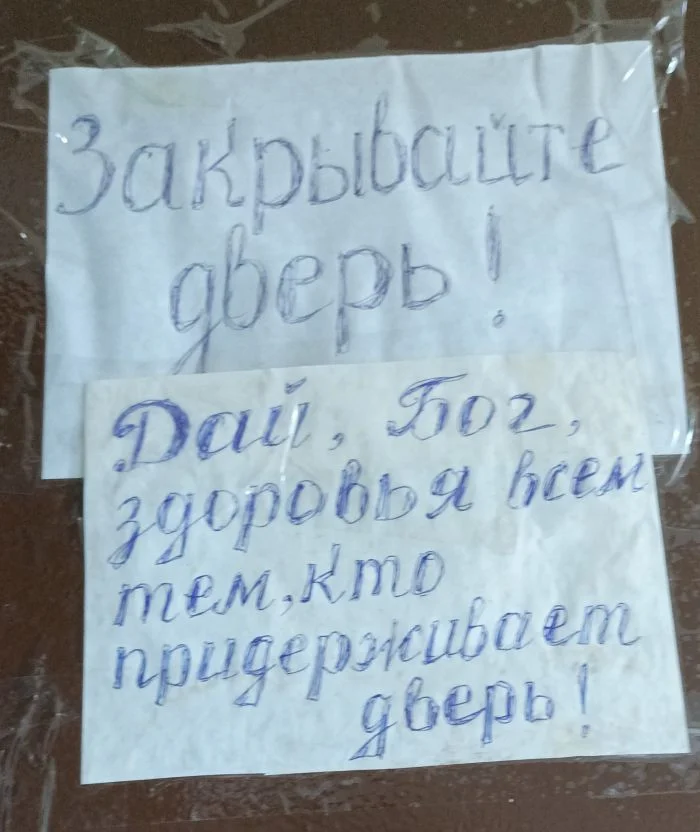 Закрывайте
дверь!
Дай, Бог,
здоровья всем
тем, кто
придерживает
дверь!